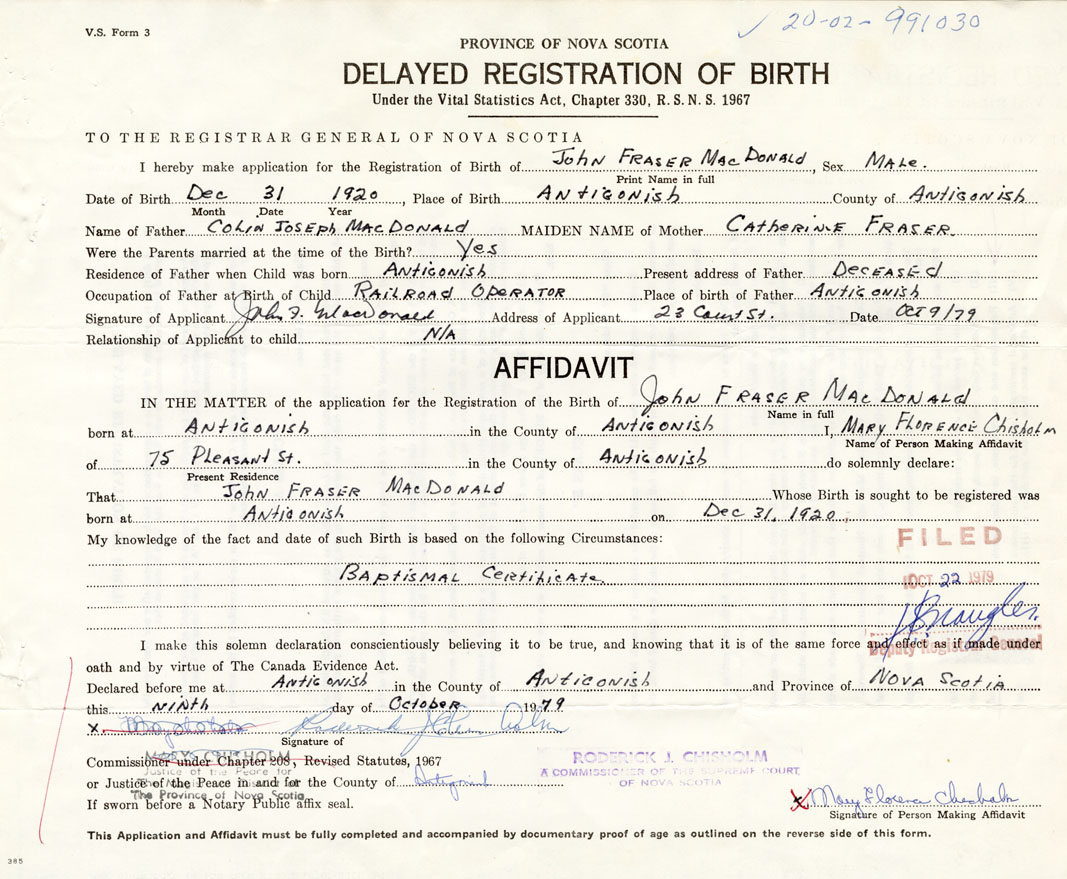 V.S. Form 3
✓ 20-02-991030
PROVINCE OF NOVA SCOTIA
DELAYED REGISTRATION OF BIRTH
Under the Vital Statistics Act, Chapter 330, R.S.N.S. 1967
TO THE REGISTRAR GENERAL OF NOVA SCOTIA
I hereby make application for the Registration of Birth of John FRASER MacDONALD, Sex MALe.
Print Name in full
Date of Birth Dec 31 1920, Place of Birth ANTIGONISh County of ANTIGONISh
Month Date Year
Name of Father COLIN JOSEPH MacDONALD MAIDEN NAME of Mother CATHERINE FRASER.
Were the Parents married at the time of the Birth? Yes
Residence of Father when Child was born ANTIGONISh Present address of Father DeceASED
Occupation of Father at Birth of Child RAILROAD OPERATOR Place of birth of Father ANTIGONISh
Signature of Applicant John F. MacDonald Address of Applicant 23 Court St. Date OCT 9/79
Relationship of Applicant to child N/A
AFFIDAVIT
IN THE MATTER of the application for the Registration of the Birth of John FRASER MacDONALD
Name in full
born at ANTIGONISh in the County of ANTIGONISh I, MARY FLORENCE Chisholm
Name of Person Making Affidavit
of 75 PLEASANT St. in the County of ANTIGONISh do solemnly declare:
Present Residence
That John FRASER MacDONALD Whose Birth is sought to be registered was
born at ANTIGONISh on Dec 31, 1920
My knowledge of the fact and date of such Birth is based on the following Circumstances:
FILED
BAptISMAL CertIficAte
OCT 22 1979
I make this solemn declaration conscientiously believing it to be true, and knowing that it is of the same force and effect as if made under
Deputy Registrar General
oath and by virtue of The Canada Evidence Act.
Declared before me at ANTIGONISh in the County of ANTIGONISh and Province of NOVA SCOTIA
this NINth day of October 1979
X
Signature of
Commissioner under Chapter 208, Revised Statutes, 1967
MARY CHISHOLM
Justice of the Peace for
or Justice of the Peace in and for the County of Antigonish
The Province of Nova Scotia
RODERICK J. CHISHOLM
A COMMISSIONER OF THE SUPREME COURT
OF NOVA SCOTIA
If sworn before a Notary Public affix seal.
X Mary Florence Chisholm
Signature of Person Making Affidavit
This Application and Affidavit must be fully completed and accompanied by documentary proof of age as outlined on the reverse side of this form.
385